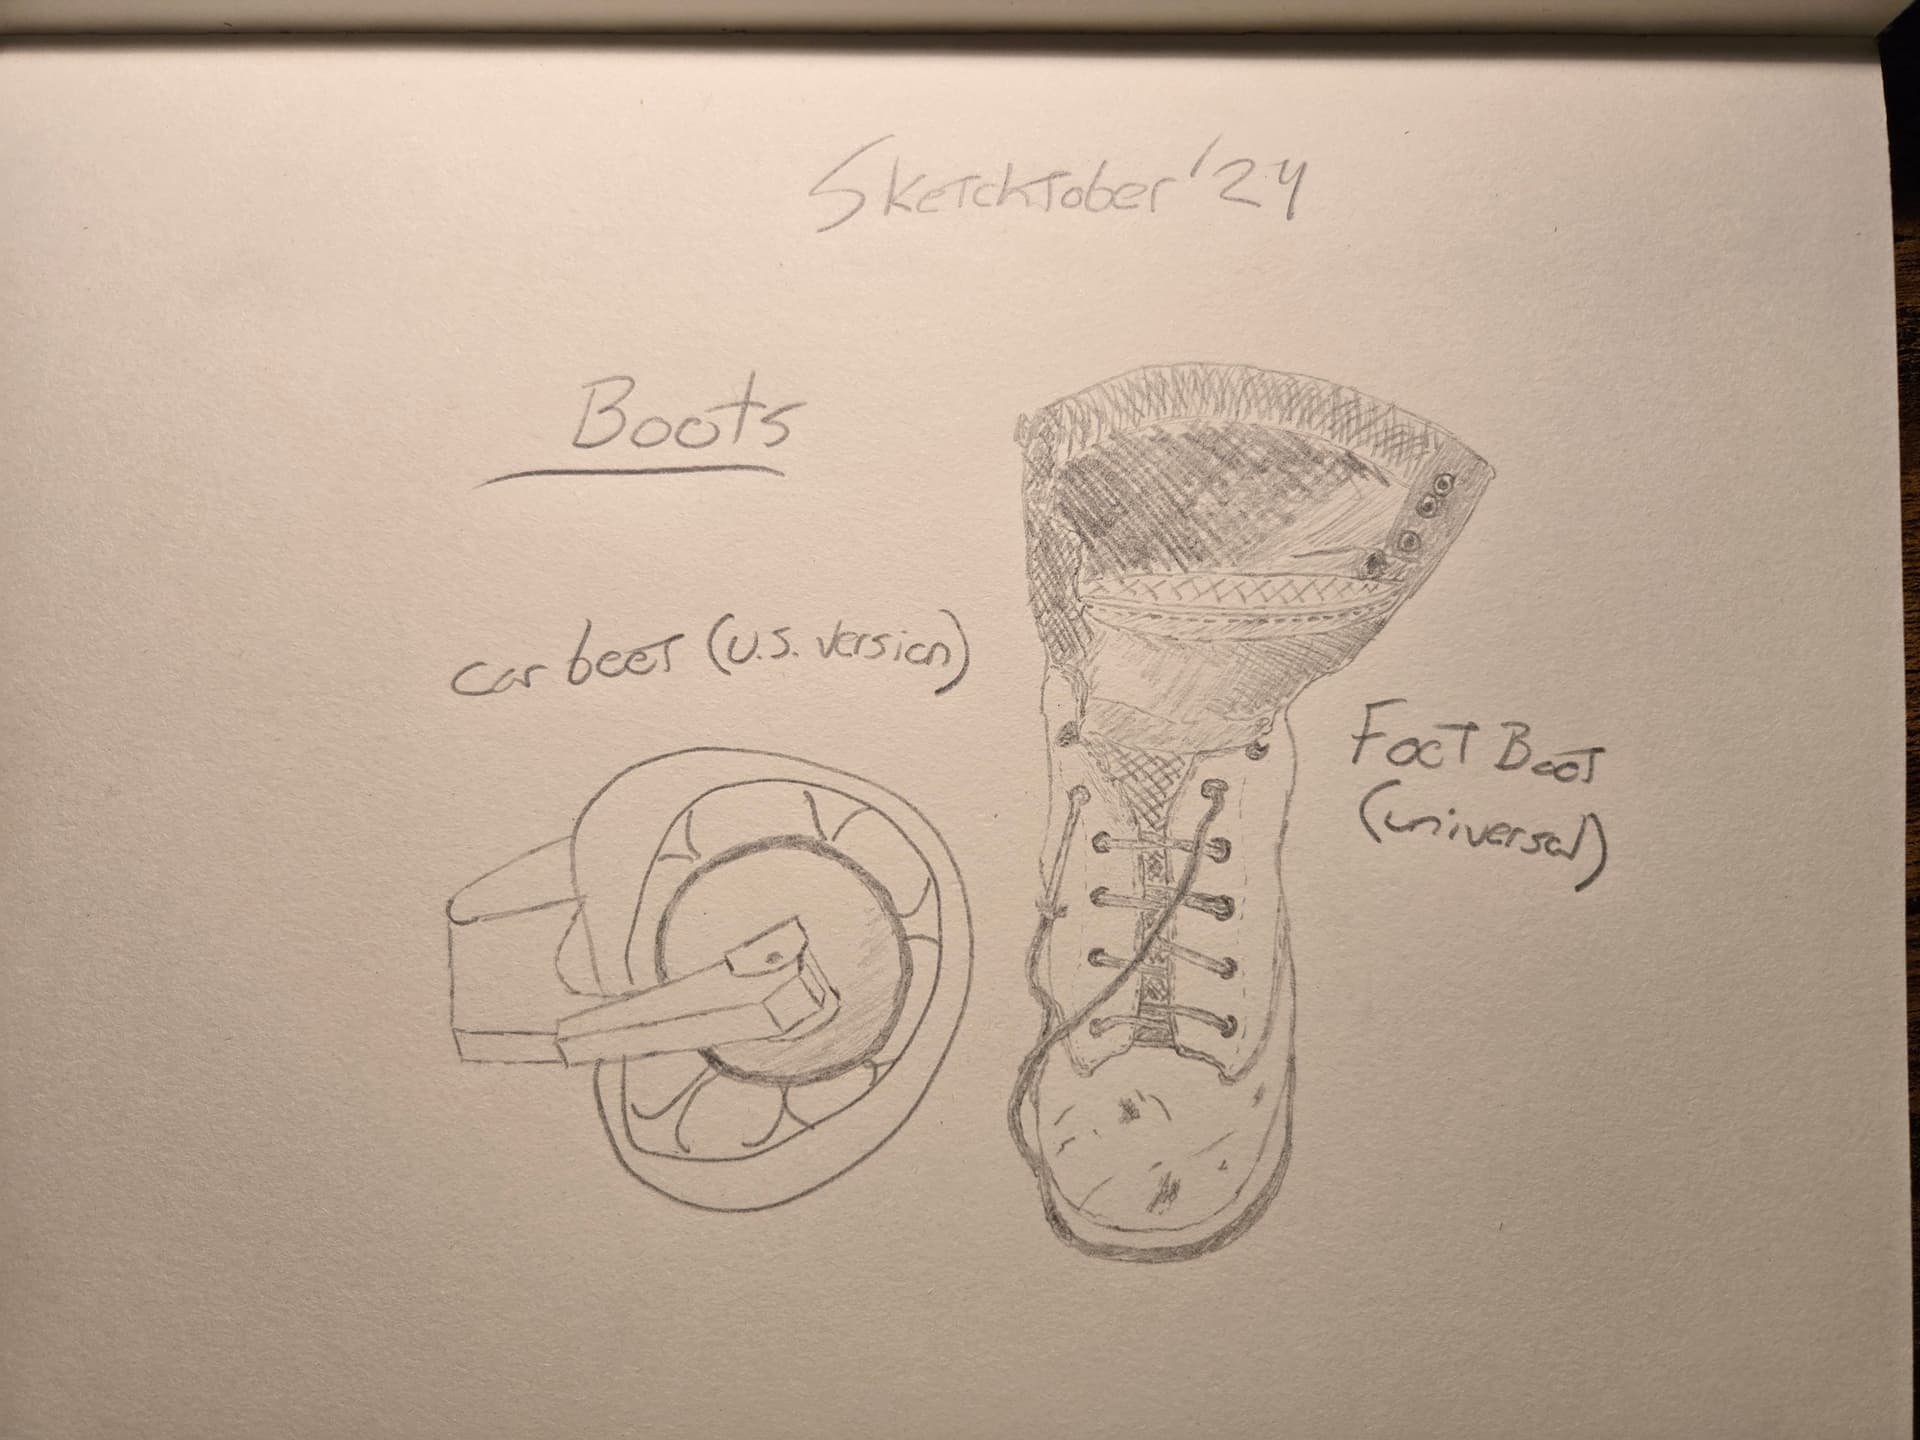 Sketcktober '24
Boots
car boot (U.S. version)
Foot Boot
(universal)